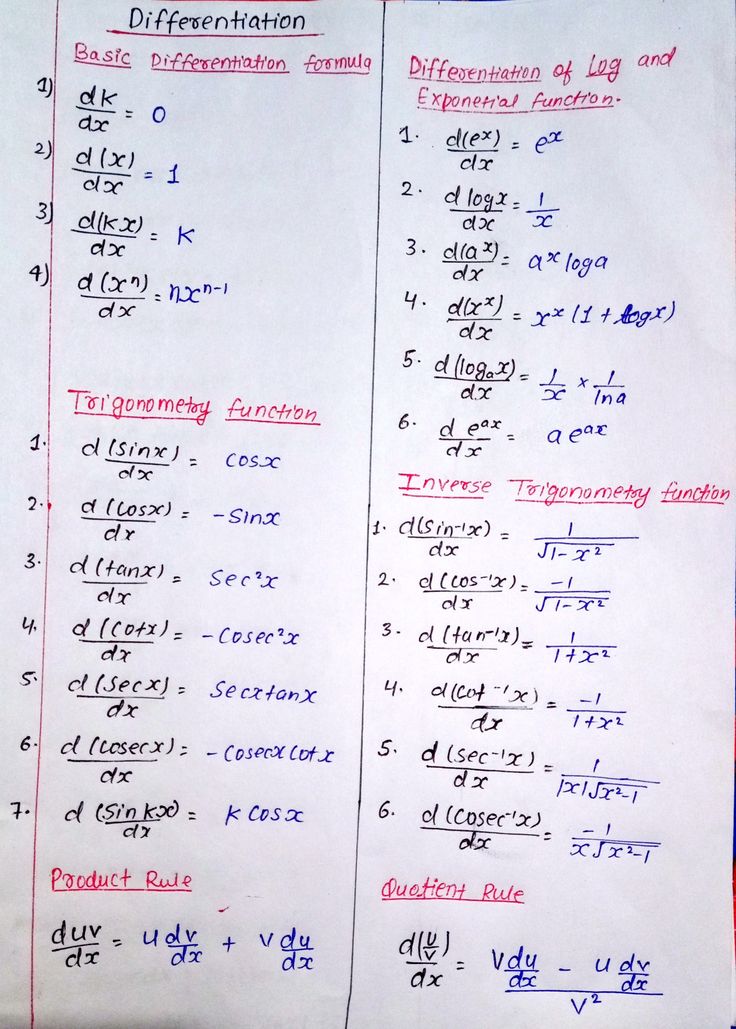 Differentiation
Basic Differentiation formula
1) dk/dx = 0
2) d(x)/dx = 1
3) d(kx)/dx = K
4) d(xⁿ)/dx = nxⁿ⁻¹
Trigonometry function
1. d(sinx)/dx = cosx
2. d(cosx)/dx = -sinx
3. d(tanx)/dx = sec²x
4. d(cotx)/dx = -cosec²x
5. d(secx)/dx = secxtanx
6. d(cosecx)/dx = -cosecxcotx
7. d(sinkx)/dx = K cosx
Product Rule
duv/dx = u dv/dx + v du/dx
Differentiation of Log and
Exponetial function.
1. d(eˣ)/dx = eˣ
2. d logx/dx = 1/x
3. d(aˣ)/dx = aˣloga
4. d(xˣ)/dx = xˣ(1 + logx)
5. d(logₐx)/dx = 1/x × 1/lna
6. d eᵃˣ/dx = a eᵃˣ
Inverse Trigonometry function
1. d(sin⁻¹x)/dx = 1/√(1-x²)
2. d(cos⁻¹x)/dx = -1/√(1-x²)
3. d(tan⁻¹x)/dx = 1/(1+x²)
4. d(cot⁻¹x)/dx = -1/(1+x²)
5. d(sec⁻¹x)/dx = 1/(|x|√(x²-1))
6. d(cosec⁻¹x)/dx = -1/(x√(x²-1))
Quotient Rule
d(u/v)/dx = (v du/dx - u dv/dx)/v²